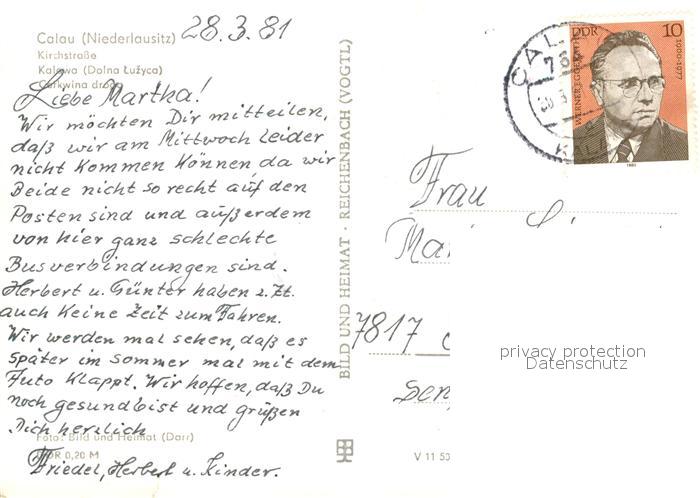 28.3.81
Calau (Niederlausitz)
Kirchstraße
Kalawa (Dolna Łužyca)
Cerkwina droga
Liebe Martha!
Wir möchten Dir mitteilen,
daß wir am Mittwoch leider
nicht kommen können da wir
Beide nicht so recht auf den
Posten sind und außerdem
von hier ganz schlechte
Busverbindungen sind.
Herbert u. Günter haben z. Zt.
auch keine Zeit zum Fahren.
Wir werden mal sehen, daß es
später im Sommer mal mit dem
Auto klappt. Wir hoffen, daß Du
noch gesund bist und grüßen
Dich herzlich
Foto: Bild und Heimat (Darr)
MDR 0,20 M
Friedel, Herbert u. Kinder.
BILD UND HEIMAT · REICHENBACH (VOGTL)
V 11 50
DDR 10
1900-1977
1981
CAL
Frau
7817
privacy protection
Datenschutz